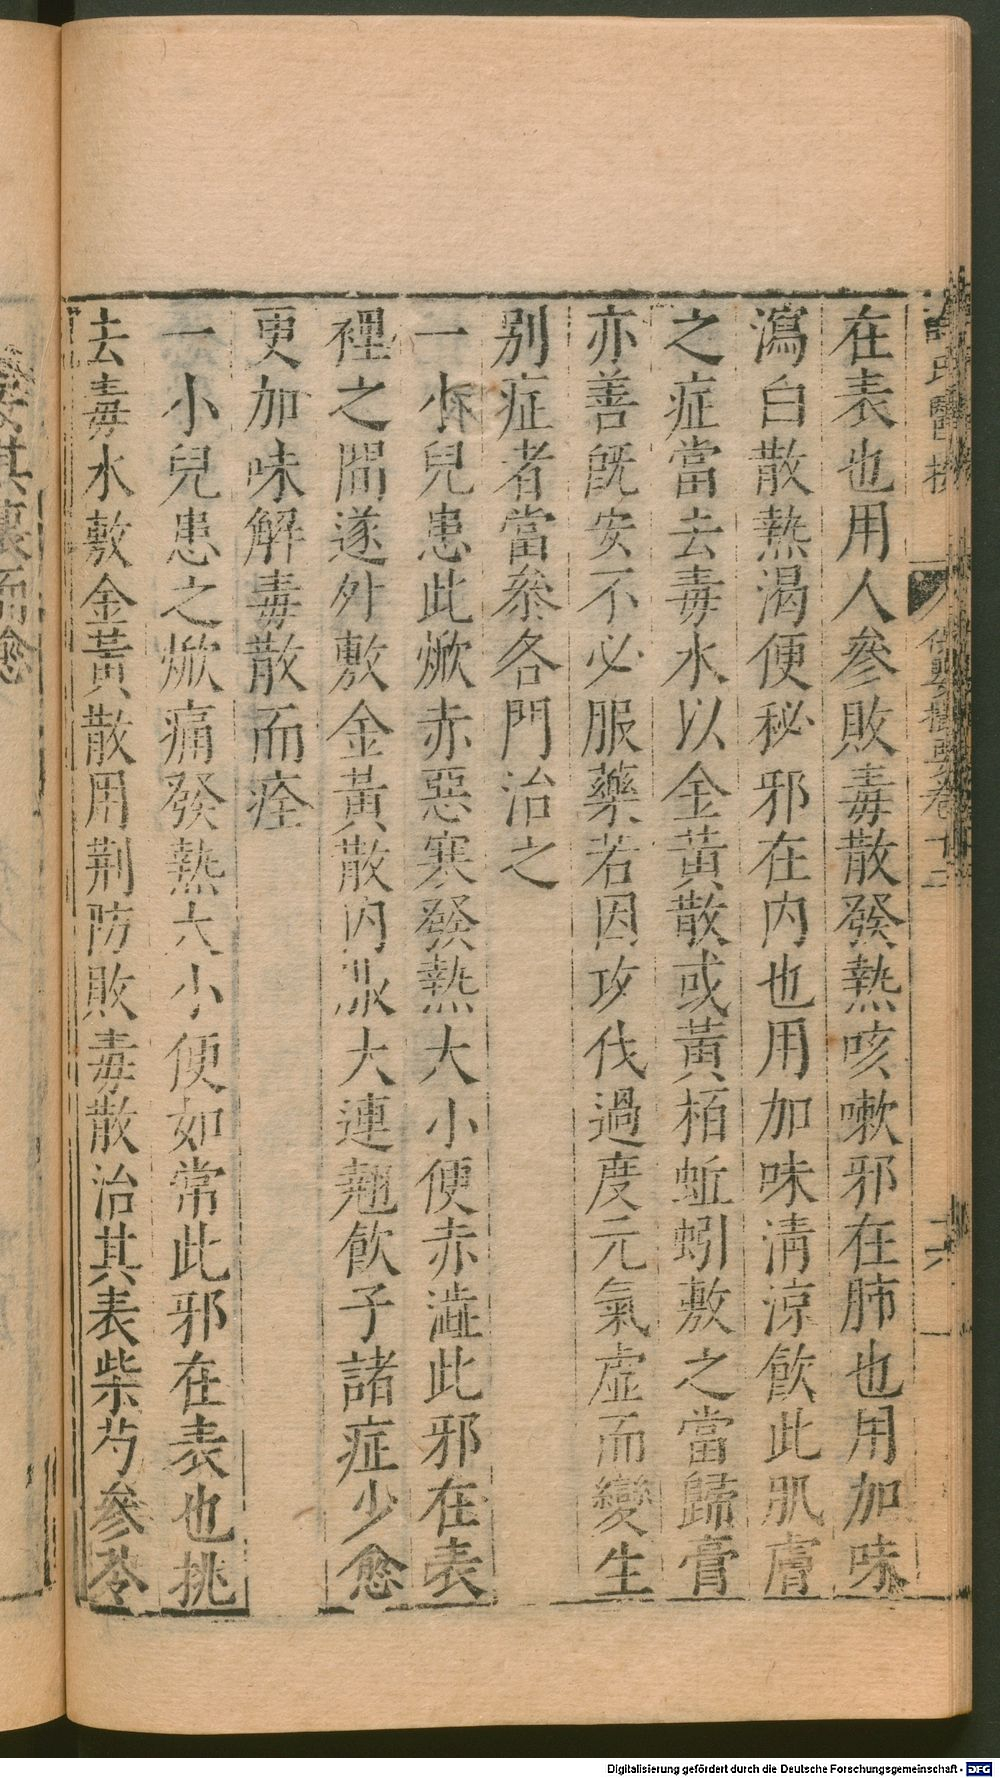 在表也用人參敗毒散發熱咳嗽邪在肺也用加味
瀉白散熱渴便秘邪在内也用加味清涼飲此肌膚
之症當去毒水以金黄散或黃栢蚯蚓敷之當歸膏
亦善既安不必服藥若因攻伐過度元氣虛而變生
别症者當叅各門治之
一小兒患此焮赤惡寒發熱大小便赤澁此邪在表
裡之間遂外敷金黃散内服大連翹飲子諸症少愈
更加味解毒散而痊
一小兒患之焮痛發熱大小便如常此邪在表也挑
去毒水敷金黃散用荆防敗毒散治其表柴芍參苓
Digitalisierung gefördert durch die Deutsche Forschungsgemeinschaft - DFG